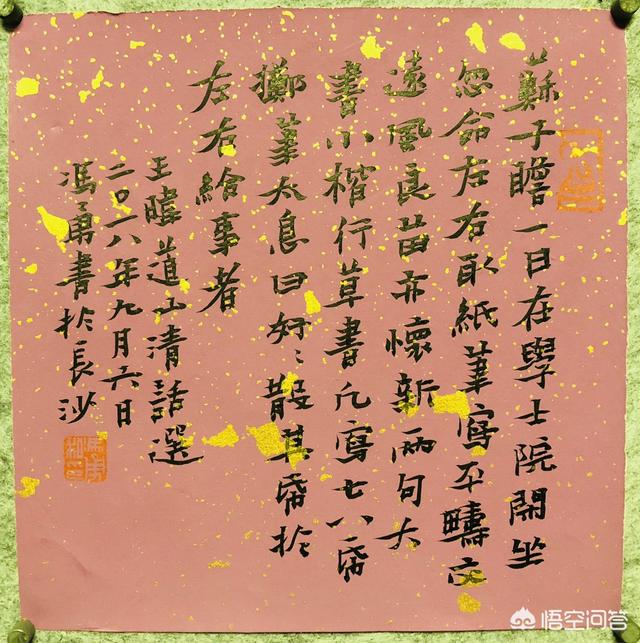 蘇子瞻一日在學士院閒坐
忽命左右取紙筆寫平疇交
遠風良苗亦懷新兩句大
書小楷行草書凡寫七八帋
擲筆太息曰好〻散其帋於
左右給事者
王暐道山清話選
二〇一八年九月六日
馮勇書於長沙
悟空问答